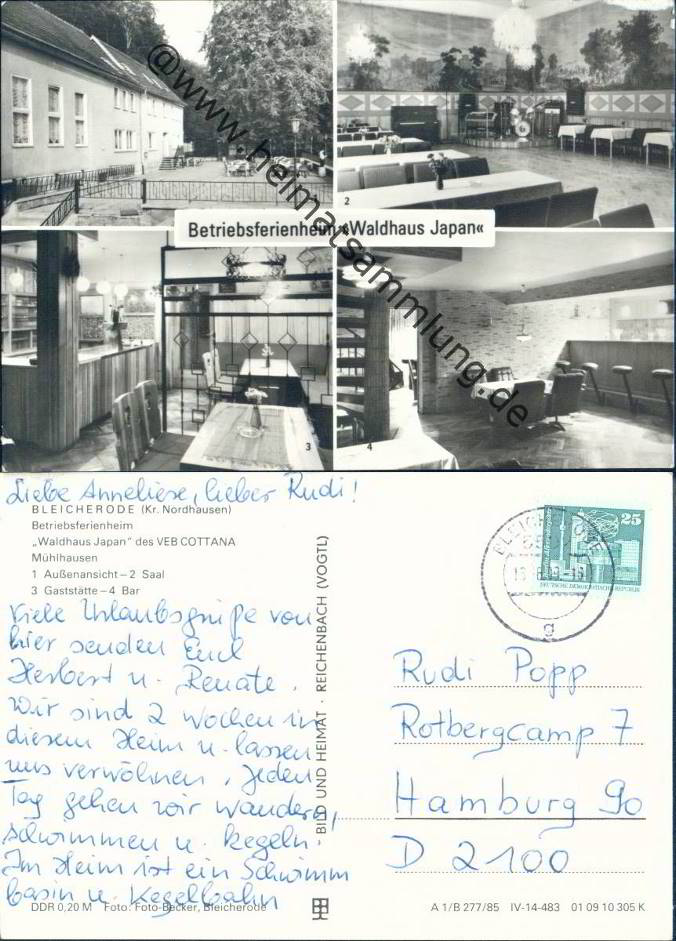 @www.heimatsammlung.de
Betriebsferienheim »Waldhaus Japan«
2
3
4
Liebe Anneliese, lieber Rudi!
BLEICHERODE (Kr. Nordhausen)
Betriebsferienheim
„Waldhaus Japan" des VEB COTTANA
Mühlhausen
1 Außenansicht – 2 Saal
3 Gaststätte – 4 Bar
Viele Urlaubsgrüße von
hier senden Euch
Herbert u. Renate.
Wir sind 2 Wochen in
diesem Heim u. lassen
uns verwöhnen. Jeden
Tag gehen wir wandern,
schwimmen u. kegeln.
Im Heim ist ein Schwimm
basin u. Kegelbahn
DDR 0,20 M Foto: Foto-Becker, Bleicherode
BILD UND HEIMAT · REICHENBACH (VOGTL)
BLEICHERODE
g
25
DEUTSCHE DEMOKRATISCHE REPUBLIK
Rudi Popp
Rotbergcamp 7
Hamburg 90
D 2100
A 1/B 277/85 IV-14-483 01 09 10 305 K